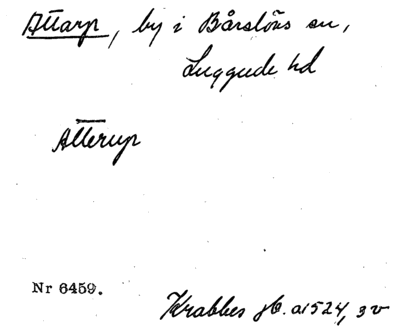 Attarp, by i Bårslövs sn,
Luggude hd
Atterup
Nr 6459.
Krabbes jb. a1524, 3v